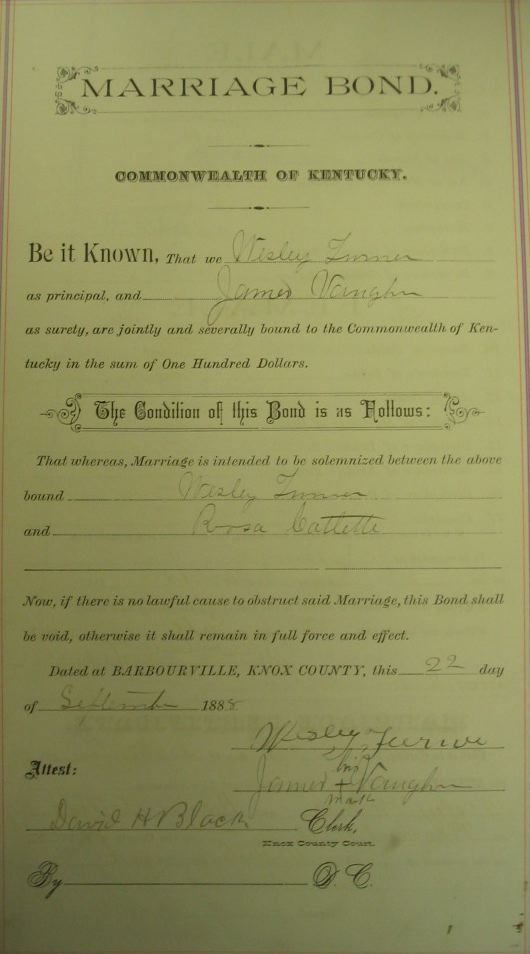 MARRIAGE BOND.
COMMONWEALTH OF KENTUCKY.
Be it Known, That we Wesley Turner
as principal, and James Vaughn
as surety, are jointly and severally bound to the Commonwealth of Ken-
tucky in the sum of One Hundred Dollars.
The Condition of this Bond is as Follows:
That whereas, Marriage is intended to be solemnized between the above
bound Wesley Turner
and Rosa Catlette
Now, if there is no lawful cause to obstruct said Marriage, this Bond shall
be void, otherwise it shall remain in full force and effect.
Dated at BARBOURVILLE, KNOX COUNTY, this 22 day
of September 1888
Wesley
his
Attest: James + Vaughn
mark
David H Black Clerk,
Knox County Court.
By D. C.